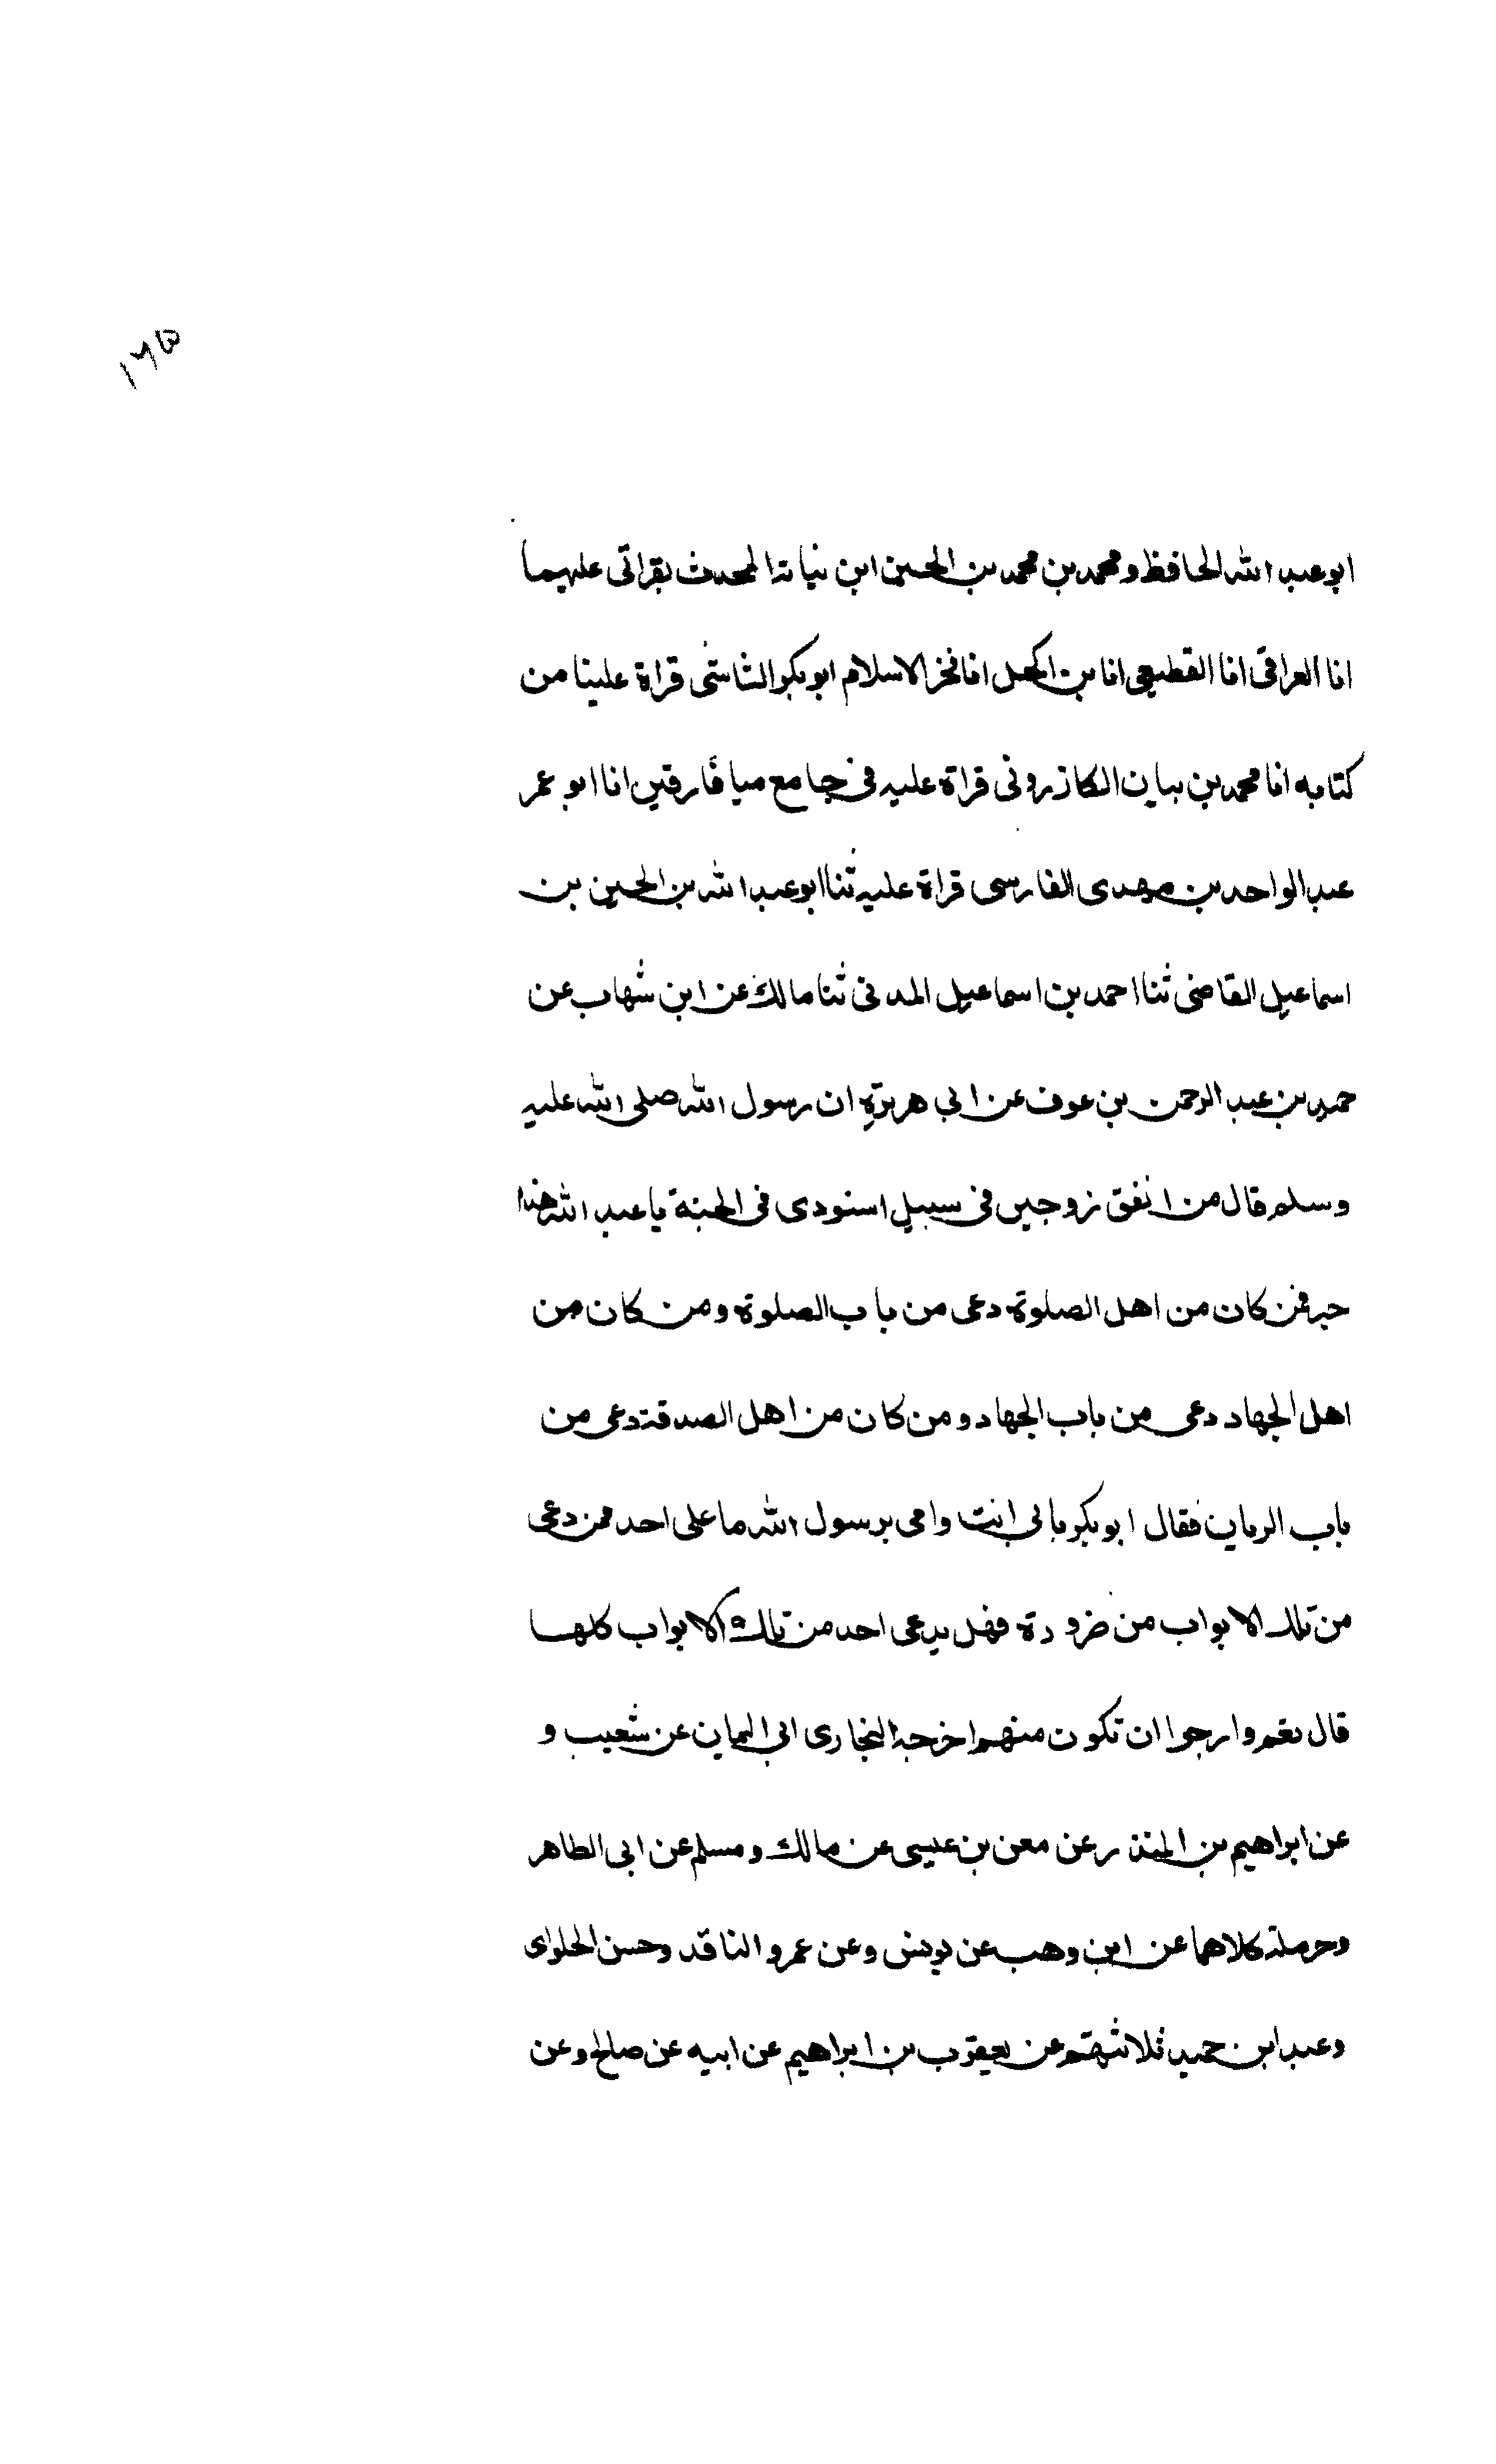 ١٦٥
ابو عبد الله الحافظ و محمد بن محمد بن الحسين ابن نباتة المحدث بقراتى عليهما
انا العراقى انا القطيعى انا بن الخل انا فخر الاسلام ابو بكر الشاشى قراة علينا من
كتابه انا محمد بن بيان الكازرونى قراة عليه فى جامع ميافارقين انا ابو عمر
عبد الواحد بن مهدى الفارسى قراة عليه ثنا ابو عبد الله بن الحسين بن
اسماعيل القاضى ثنا احمد بن اسماعيل المدنى ثنا مالك عن ابن شهاب عن
حميد بن عبد الرحمن بن عوف عن ابي هريرة ان رسول الله صلى الله عليه
وسلم قال من انفق زوجين فى سبيل اسنودى فى الجنة يا عبد الله هذا
خير فمن كان من اهل الصلوة دعى من باب الصلوة ومن كان من
اهل الجهاد دعى من باب الجهاد و من كان من اهل الصدقة دعى من
باب الريان فقال ابو بكر بابى انت وامى يرسول الله ما على احد ممن دعى
من تلك الابواب من ضرودة فهل يدعى احد من تلك الابواب كلها
قال نعم وارجوا ان تكون منهم اخرجه البخارى ابى اليمان عن شعيب و
عن ابراهيم بن المنذر عن معن بن عيسى عن مالك ومسلم عن ابى الطاهر
وحرملة كلاهما عن ابن وهب عن يونس وعن عمرو الناقد وحسن الحلواى
وعبد ابن حميد ثلاثتهم عن يعقوب بن ابراهيم عن ابيه عن صالح وعن